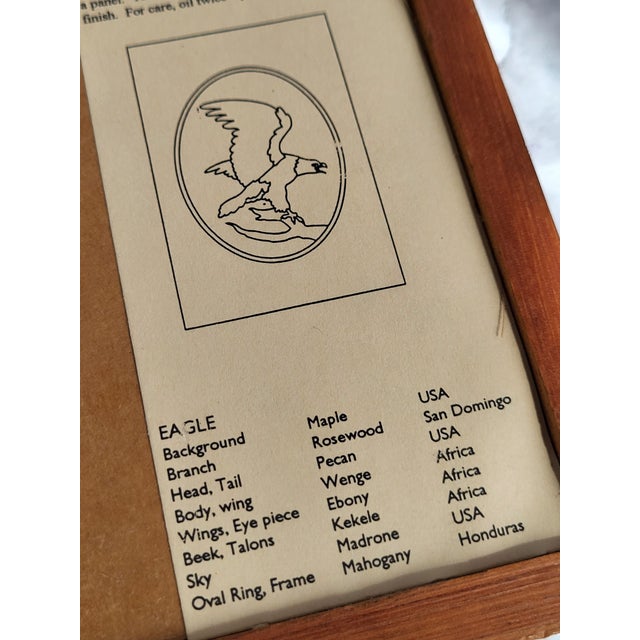 a panel.
finish. For care, oil twice
EAGLE
Background Maple USA
Branch Rosewood San Domingo
Head, Tail Pecan USA
Body, wing Wenge Africa
Wings, Eye piece Ebony Africa
Beek, Talons Kekele Africa
Sky Madrone USA
Oval Ring, Frame Mahogany Honduras